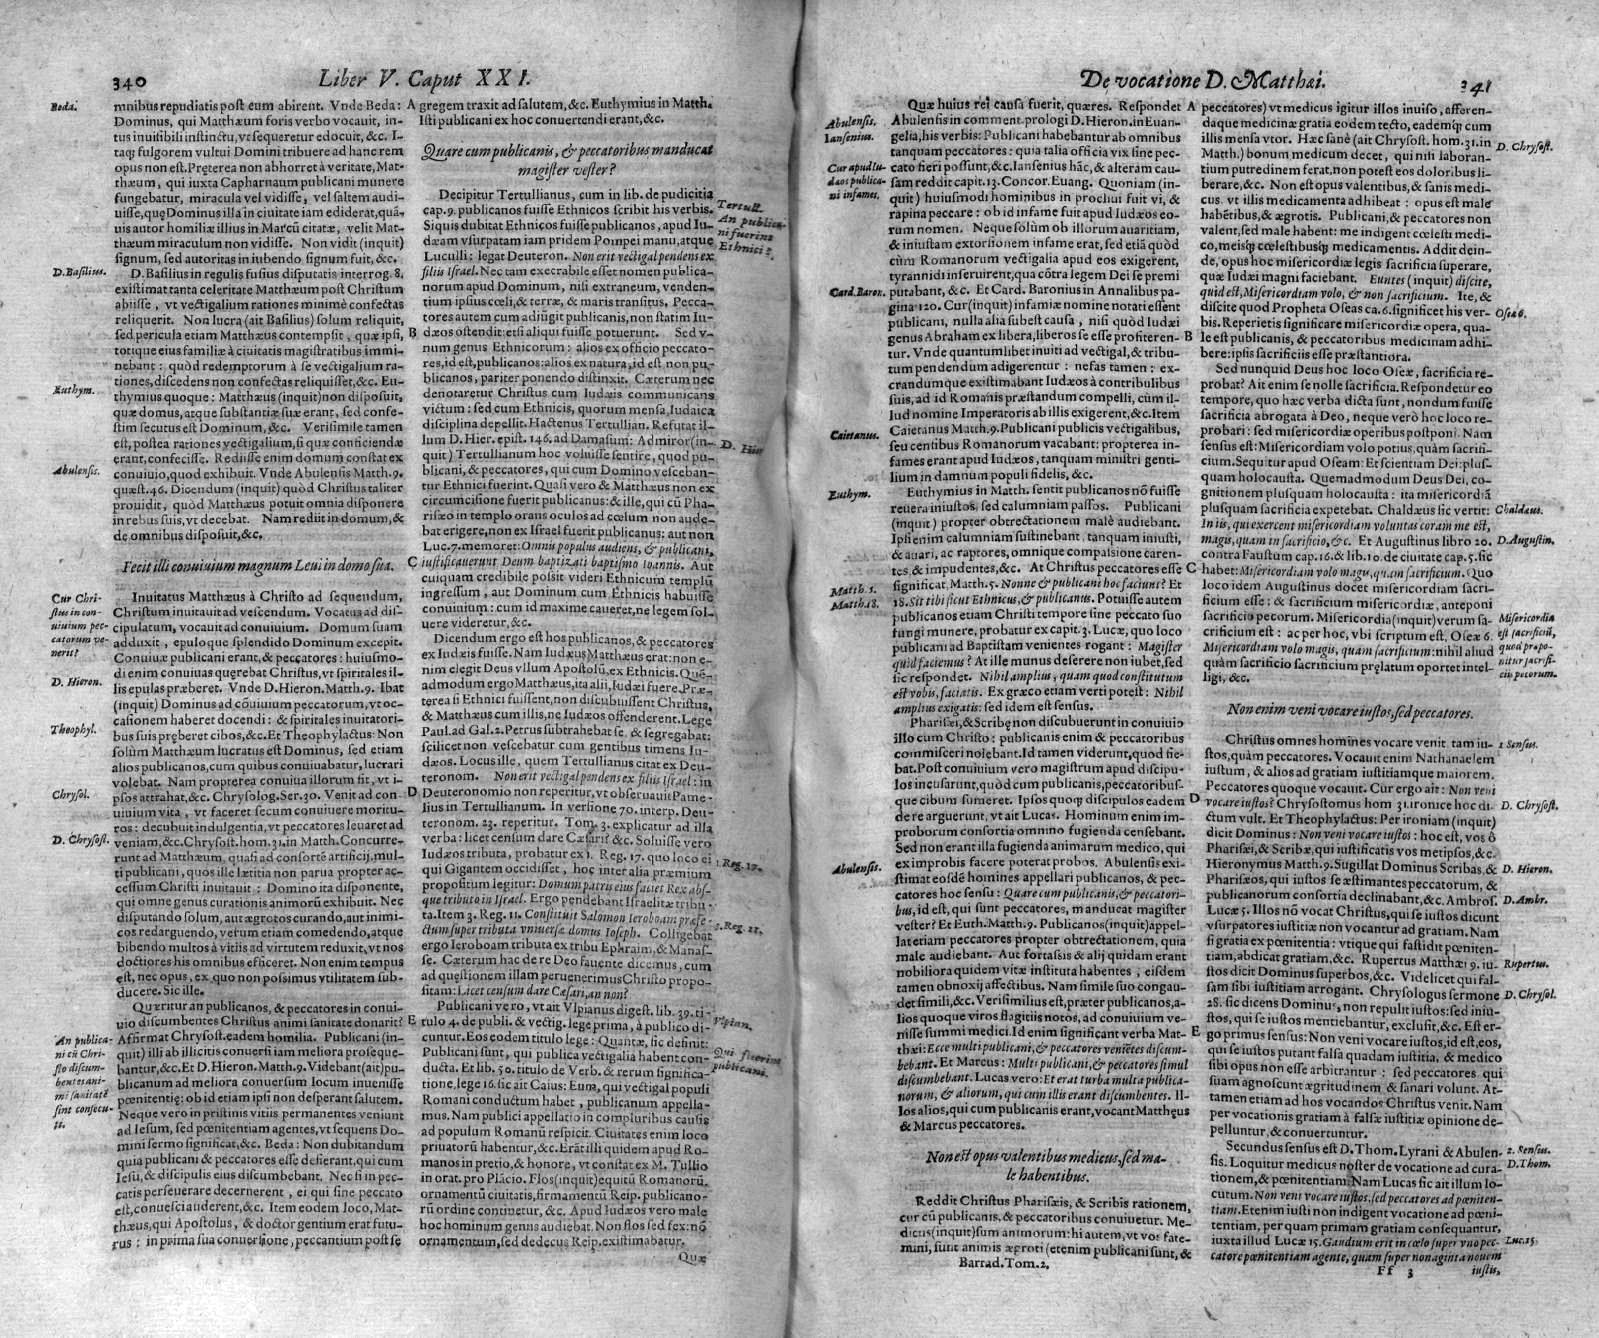 340
Liber V. Caput XXI.
Beda.
mnibus repudiatis post eum abirent. Vnde Beda:
Dominus, qui Matthæum foris verbo vocauit, in-
tus inuisibili instinctu, vt sequeretur edocuit, &c. I-
taq; fulgorem vultui Domini tribuere ad hanc rem
opus non est. Pręterea non abhorret à veritate, Mat-
thæum, qui iuxta Capharnaum publicani munere
fungebatur, miracula vel vidisse, vel saltem audi-
uisse, quę Dominus illa in ciuitate iam ediderat, quã-
uis autor homiliæ illius in Marcũ citatæ, velit Mat-
thæum miraculum non vidisse. Non vidit (inquit)
signum, sed autoritas in iubendo signum fuit, &c.
D. Basilius.
D. Basilius in regulis fusius disputatis interrog. 8.
existimat tanta celeritate Matthæum post Christum
abiisse, vt vectigalium rationes minimè confectas
reliquerit. Non lucra (ait Basilius) solum reliquit,
sed pericula etiam Matthæus contempsit, quæ ipsi,
totique eius familiæ à ciuitatis magistratibus immi-
nebant: quòd redemptorum à se vectigalium ra-
tiones, discedens non confectas reliquisset, &c. Eu-
Euthym.
thymius quoque: Matthæus (inquit) non disposuit,
quæ domus, atque substantiæ suæ erant, sed confe-
stim secutus est Dominum, &c. Verisimile tamen
est, postea rationes vectigalium, si quæ conficiendæ
erant, confecisse. Rediisse enim domum constat ex
Abulensis.
conuiuio, quod exhibuit. Vnde Abulensis Matth. 9.
quæst. 46. Dicendum (inquit) quòd Christus taliter
prouidit, quòd Matthæus potuit omnia disponere
in rebus suis, vt decebat. Nam rediit in domum, &
de omnibus disposuit, &c.
Fecit illi conuiuium magnum Leui in domo sua.
Cur Chri-
stus in con-
uiuium pec-
catorum ve-
nerit?
Inuitatus Matthæus à Christo ad sequendum,
Christum inuitauit ad vescendum. Vocatus ad dis-
cipulatum, vocauit ad conuiuium. Domum suam
adduxit, epuloque splendido Dominum excepit.
Conuiuæ publicani erant, & peccatores: huiusmo-
di enim conuiuas quęrebat Christus, vt spiritales il-
D. Hieron.
lis epulas præberet. Vnde D. Hieron. Matth. 9. Ibat
(inquit) Dominus ad cõuiuium peccatorum, vt oc-
casionem haberet docendi: & spiritales inuitatori-
Theophyl.
bus suis pręberet cibos, &c. Et Theophylactus: Non
solùm Matthæum lucratus est Dominus, sed etiam
alios publicanos, cum quibus conuiuabatur, lucrari
volebat. Nam propterea conuiua illorum fit, vt i-
Chrysol.
psos attrahat, &c. Chrysolog. Ser. 30. Venit ad con-
uiuium vita, vt faceret secum conuiuere moritu-
ros: decubuit indulgentia, vt peccatores leuaret ad
D. Chrysost.
veniam, &c. Chrysost. hom. 31. in Matth. Concurre-
runt ad Matthæum, quasi ad consortẽ artificij, mul-
ti publicani, quos ille lætitia non parua propter ac-
cessum Christi inuitauit: Domino ita disponente,
qui omne genus curationis animorũ exhibuit. Nec
disputando solum, aut ægrotos curando, aut inimi-
cos redarguendo, verum etiam comedendo, atque
bibendo multos à vitiis ad virtutem reduxit, vt nos
doctiores his omnibus efficeret. Non enim tempus
est, nec opus, ex quo non possimus vtilitatem sub-
ducere. Sic ille.
Quæritur an publicanos, & peccatores in conui-
uio discumbentes Christus animi sanitate donarit?
An publica-
ni cũ Chri-
sto discum-
bentes ani-
mi sanitatẽ
sint consecu-
ti.
Affirmat Chrysost. eadem homilia. Publicani (in-
quit) illi ab illicitis conuersi iam meliora proseque-
bantur, &c. Et D. Hieron. Matth. 9. Videbant (ait) pu-
blicanum ad meliora conuersum locum inuenisse
pœnitentię: ob id etiam ipsi non desperant salutem.
Neque vero in pristinis vitiis permanentes veniunt
ad Iesum, sed pœnitentiam agentes, vt sequens Do-
mini sermo significat, &c. Beda: Non dubitandum
quia publicani & peccatores esse desierant, qui cum
Iesu, & discipulis eius discumbebant. Nec si in pec-
catis perseuerare decernerent, ei qui sine peccato
est, conuesci auderent, &c. Item eodem loco, Mat-
thæus, qui Apostolus, & doctor gentium erat futu-
rus: in prima sua conuersione, peccantium post se
A
B
C
D
E
gregem traxit ad salutem, &c. Euthymius in Matth.
Isti publicani ex hoc conuertendi erant, &c.
Quare cum publicanis, & peccatoribus manducat
magister vester?
Decipitur Tertullianus, cum in lib. de pudicitia
Tertull.
An publica-
ni fuerint
Ethnici?
cap. 9. publicanos fuisse Ethnicos scribit his verbis.
Siquis dubitat Ethnicos fuisse publicanos, apud Iu-
dæam vsurpatam iam pridem Pompei manu, atque
Luculli: legat Deuteron. Non erit vectigal pendens ex
filiis Israel. Nec tam execrabile esset nomen publica-
norum apud Dominum, nisi extraneum, venden-
tium ipsius cœli, & terræ, & maris transitus. Pecca-
tores autem cum adiũgit publicanis, non statim Iu-
dæos ostendit: etsi aliqui fuisse potuerunt. Sed v-
num genus Ethnicorum: alios ex officio peccato-
res, id est, publicanos: alios ex natura, id est non pu-
blicanos, pariter ponendo distinxit. Cæterum nec
denotaretur Christus cum Iudæis communicans
victum: sed cum Ethnicis, quorum mensa, Iudaica
disciplina depellit. Hactenus Tertullian. Refutat il-
D. Hier
lum D. Hier. epist. 146. ad Damasum: Admiror (in-
quit) Tertullianum hoc voluisse sentire, quod pu-
blicani, & peccatores, qui cum Domino vesceban-
tur Ethnici fuerint. Quasi vero & Matthæus non ex
circumcisione fuerit publicanus: & ille, qui cũ Pha-
risæo in templo orans oculos ad cœlum non aude-
bat erigere, non ex Israel fuerit publicanus: aut non
Luc. 7. memoret: Omnis populus audiens, & publicani,
iustificauerunt Deum baptizati baptismo Ioannis. Aut
cuiquam credibile possit videri Ethnicum templũ
ingressum, aut Dominum cum Ethnicis habuisse
conuiuium: cum id maxime caueret, ne legem sol-
uere videretur, &c.
Dicendum ergo est hos publicanos, & peccatores
ex Iudæis fuisse. Nam Iudæus Matthæus erat: non e-
nim elegit Deus vllum Apostolũ, ex Ethnicis. Quẽ-
admodum ergo Matthæus, ita alii, Iudæi fuere. Præ-
terea si Ethnici fuissent, non discubuissent Christus,
& Matthæus cum illis, ne Iudæos offenderent. Lege
Paul. ad Gal. 2. Petrus subtrahebat se, & segregabat:
scilicet non vescebatur cum gentibus timens Iu-
dæos. Locus ille, quem Tertullianus citat ex Deu-
teronom. Non erit vectigal pendens ex filiis Israel: in
Deuteronomio non reperitur, vt obseruauit Pame-
lius in Tertullianum. In versione 70. interp. Deu-
teronom. 23. reperitur. Tom. 3. explicatur ad illa
verba: licet censum dare Cæsari? &c. Soluisse vero
1. Reg. 17.
Iudæos tributa, probatur ex 1. Reg. 17. quo loco ei
qui Gigantem occidisset, hoc inter alia præmium
propositum legitur: Domum patris eius faciet Rex abs-
que tributo in Israel. Ergo pendebant Israelitæ tribu-
ta. Item 3. Reg. 11. Constituit Salomon Ieroboam præfe-
3. Reg. 11.
ctum super tributa vniuersæ domus Ioseph. Colligebat
ergo Ieroboam tributa ex tribu Ephraim, & Manas-
se. Cæterum hac de re Deo fauente dicemus, cum
ad quęstionem illam peruenerimus Christo propo-
sitam: Licet censum dare Cæsari, an non?
Publicani vero, vt ait Vlpianus digest. lib. 39. ti-
Vlpian.
tulo 4. de publi. & vectig. lege prima, à publico di-
cuntur. Eos eodem titulo lege: Quantæ, sic definit:
Qui fuerint
publicani.
Publicani sunt, qui publica vectigalia habent con-
ducta. Et lib. 50. titulo de Verb. & rerum significa-
tione, lege 16. sic ait Caius: Eum, qui vectigal populi
Romani conductum habet, publicanum appella-
mus. Nam publici appellatio in compluribus causis
ad populum Romanũ respicit. Ciuitates enim loco
priuatorũ habentur, &c. Erãt illi quidem apud Ro-
manos in pretio, & honore, vt constat ex M. Tullio
in orat. pro Plãcio. Flos (inquit) equitũ Romanorũ,
ornamentũ ciuitatis, firmamentũ Reip. publicano-
rũ ordine continetur, &c. Apud Iudæos vero male
hoc hominum genus audiebat. Non flos sed fex: nõ
ornamentum, sed dedecus Reip. existimabatur.
Quæ
De vocatione D. Matthæi.
341
Quæ huius rei causa fuerit, quæres. Respondet
Abulensis.
Iansenius.
Abulensis in comment. prologi D. Hieron. in Euan-
gelia, his verbis: Publicani habebantur ab omnibus
tanquam peccatores: quia talia officia vix sine pec-
Cur apud Iu-
dæos publica-
ni infames.
cato fieri possunt, &c. Iansenius hãc, & alteram cau-
sam reddit capit. 13. Concor. Euang. Quoniam (in-
quit) huiusmodi hominibus in procliui fuit vi, &
rapina peccare: ob id infame fuit apud Iudæos eo-
rum nomen. Neque solùm ob illorum auaritiam,
& iniustam extorsionem infame erat, sed etiã quòd
cùm Romanorum vectigalia apud eos exigerent,
tyrannidi inseruirent, qua cõtra legem Dei se premi
Card. Baron.
putabant, &c. Et Card. Baronius in Annalibus pa-
gina 120. Cur (inquit) infamiæ nomine notati essent
publicani, nulla alia subest causa, nisi quòd Iudæi
genus Abraham ex libera, liberos se esse profiteren-
tur. Vnde quantumlibet inuiti ad vectigal, & tribu-
tum pendendum adigerentur: nefas tamen: ex-
crandumque existimabant Iudæos à contribulibus
suis, ad id Romanis præstandum compelli, cùm il-
lud nomine Imperatoris ab illis exigerent, &c. Item
Caietanus.
Caietanus Matth. 9. Publicani publicis vectigalibus,
seu censibus Romanorum vacabant: propterea in-
fames erant apud Iudæos, tanquam ministri genti-
lium in damnum populi fidelis, &c.
Euthym.
Euthymius in Matth. sentit publicanos nõ fuisse
reuera iniustos, sed calumniam passos. Publicani
(inquit) propter obtrectationem malè audiebant.
Ipsi enim calumniam sustinebant, tanquam iniusti,
& auari, ac raptores, omnique compassione caren-
tes, & impudentes, &c. At Christus peccatores esse
Matth. 5.
Matth. 18.
significat, Matth. 5. Nonne & publicani hoc faciunt? Et
18. Sit tibi sicut Ethnicus, & publicanus. Potuisse autem
publicanos etiam Christi tempore sine peccato suo
fungi munere, probatur ex capit. 3. Lucæ, quo loco
publicani ad Baptistam venientes rogant: Magister
quid faciemus? At ille munus deserere non iubet, sed
sic respondet. Nihil amplius, quam quod constitutum
est vobis, faciatis. Ex græco etiam verti potest: Nihil
amplius exigatis: sed idem est sensus.
Pharisæi, & Scribę non discubuerunt in conuiuio
illo cum Christo: publicanis enim & peccatoribus
commisceri nolebant. Id tamen viderunt, quod fie-
bat. Post conuiuium vero magistrum apud discipu-
los incusarunt, quòd cum publicanis, peccatoribus-
que cibum sumeret. Ipsos quoq; discipulos eadem
de re arguerunt, vt ait Lucas. Hominum enim im-
proborum consortia omnino fugienda censebant.
Sed non erant illa fugienda animarum medico, qui
Abulensis.
ex improbis facere poterat probos. Abulensis exi-
stimat eosdẽ homines appellari publicanos, & pec-
catores hoc sensu: Quare cum publicanis, & peccatori-
bus, id est, qui sunt peccatores, manducat magister
vester? Et Euth. Matth. 9. Publicanos (inquit) appel-
lat etiam peccatores propter obtrectationem, quia
male audiebant. Aut fortassis & alij quidam erant
nobiliora quidem vitæ instituta habentes, eisdem
tamen obnoxij affectibus. Nam simile suo congau-
det simili, &c. Verisimilius est, præter publicanos, a-
lios quoque viros flagitiis notos, ad conuiuium ve-
nisse summi medici. Id enim significant verba Mat-
thæi: Ecce multi publicani, & peccatores veniẽtes discum-
bebant. Et Marcus: Multi publicani, & peccatores simul
discumbebant. Lucas vero: Et erat turba multa publica-
norum, & aliorum, qui cum illis erant discumbentes. Il-
los alios, qui cum publicanis erant, vocant Matthęus
& Marcus peccatores.
Non est opus valentibus medicus, sed ma-
le habentibus.
Reddit Christus Pharisæis, & Scribis rationem,
cur cũ publicanis, & peccatoribus conuiuetur. Me-
dicus (inquit) sum animorum: hi autem, vt vos fate-
mini, sunt animis ægroti (etenim publicani sunt, &
Barrad. Tom. 2.
A
B
C
D
E
peccatores) vt medicus igitur illos inuiso, afferen-
daque medicinæ gratia eodem tecto, eademq; cum
D. Chrysost.
illis mensa vtor. Hæc sanè (ait Chrysost. hom. 31. in
Matth.) bonum medicum decet, qui nisi laboran-
tium putredinem ferat, non potest eos doloribus li-
berare, &c. Non est opus valentibus, & sanis medi-
cus. vt illis medicamenta adhibeat: opus est male
habẽtibus, & ægrotis. Publicani, & peccatores non
valent, sed male habent: me indigent cœlesti medi-
co, meisq; cœlestibusq; medicamentis. Addit dein-
de, opus hoc misericordiæ legis sacrificia superare,
quæ Iudæi magni faciebant. Euntes (inquit) discite,
quid est, Misericordiam volo, & non sacrificium. Ite, &
Oseæ 6.
discite quod Propheta Oseas ca. 6. significet his ver-
bis. Reperietis significare misericordiæ opera, qua-
le est publicanis, & peccatoribus medicinam adhi-
bere: ipsis sacrificiis esse præstantiora.
Sed nunquid Deus hoc loco Oseæ, sacrificia re-
probat? Ait enim se nolle sacrificia. Respondetur eo
tempore, quo hæc verba dicta sunt, nondum fuisse
sacrificia abrogata à Deo, neque verò hoc loco re-
probari: sed misericordiæ operibus postponi. Nam
sensus est: Misericordiam volo potius, quàm sacrifi-
cium. Sequitur apud Oseam: Et scientiam Dei: plus-
quam holocausta. Quemadmodum Deus Dei, co-
gnitionem plusquam holocausta: ita misericordiã
Chaldæus.
plusquam sacrificia expetebat. Chaldæus sic vertit:
In iis, qui exercent misericordiam voluntas coram me est,
D. Augustin.
magis, quam in sacrificio, &c. Et Augustinus libro 20.
contra Faustum cap. 16. & lib. 10. de ciuitate cap. 5. sic
habet: Misericordiam volo magis, quam sacrificium. Quo
loco idem Augustinus docet misericordiam sacri-
ficium esse: & sacrificium misericordiæ, anteponi
Misericordia
est sacrificiũ,
quod præpo-
nitur sacrifi-
ciis pecorum.
sacrificio pecorum. Misericordia (inquit) verum sa-
crificium est: ac per hoc, vbi scriptum est, Oseæ 6.
Misericordiam volo magis, quam sacrificium: nihil aliud
quàm sacrificio sacrificium pręlatum oportet intel-
ligi, &c.
Non enim veni vocare iustos, sed peccatores.
1 Sensus.
Christus omnes homines vocare venit, tam iu-
stos, quàm peccatores. Vocauit enim Nathanaelem
iustum, & alios ad gratiam iustitiamque maiorem.
Peccatores quoque vocauit. Cur ergo ait: Non veni
D. Chrysost.
vocare iustos? Chrysostomus hom 31. ironice hoc di-
ctum vult. Et Theophylactus: Per ironiam (inquit)
dicit Dominus: Non veni vocare iustos: hoc est, vos ô
Pharisæi, & Scribæ, qui iustificatis vos metipsos, &c.
D. Hieron.
Hieronymus Matth. 9. Sugillat Dominus Scribas, &
Pharisæos, qui iustos se æstimantes peccatorum, &
D. Ambr.
publicanorum consortia declinabant, &c. Ambros.
Lucæ 5. Illos nõ vocat Christus, qui se iustos dicunt
vsurpatores iustitiæ non vocantur ad gratiam. Nam
si gratia ex pœnitentia: vtique qui fastidit pœniten-
Rupertus.
tiam, abdicat gratiam, &c. Rupertus Matthæi 9. iu-
stos dicit Dominus superbos, &c. Videlicet qui fal-
D. Chrysol.
sam sibi iustitiam arrogant. Chrysologus sermone
28. sic dicens Dominus, non repulit iustos: sed iniu-
stos, qui se iustos mentiebantur, exclusit, &c. Est er-
go primus sensus: Non veni vocare iustos, id est, eos,
qui se iustos putant falsa quadam iustitia, & medico
sibi opus non esse arbitrantur: sed peccatores qui
suam agnoscunt ægritudinem & sanari volunt. At-
tamen etiam ad hos vocandos Christus venit. Nam
per vocationis gratiam à falsæ iustitiæ opinione de-
pelluntur, & conuertuntur.
2. Sensus.
D. Thom.
Secundus sensus est D. Thom. Lyrani & Abulen-
sis. Loquitur medicus noster de vocatione ad cura-
tionem, & pœnitentiam. Nam Lucas sic ait illum lo-
cutum. Non veni vocare iustos, sed peccatores ad pœniten-
tiam. Etenim iusti non indigent vocatione ad pœni-
tentiam, per quam primam gratiam consequantur,
Luc. 15.
iuxta illud Lucæ 15. Gaudium erit in cœlo super vno pec-
catore pœnitentiam agente, quam super nonaginta nouem
Ff 3
iustis,